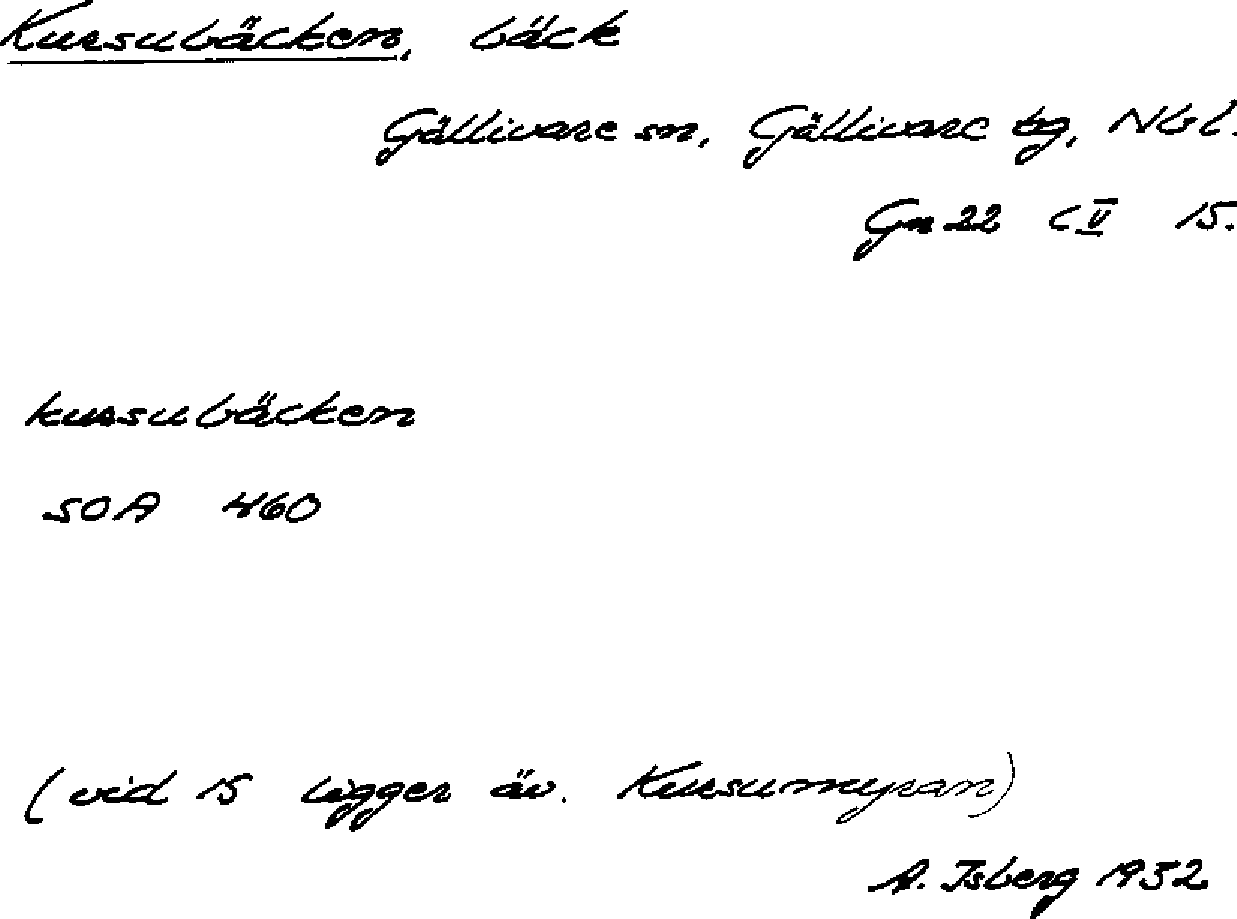 Kursubäcken, bäck
Gällivare sn, Gällivare tg, Nbl.
Gn 22 C V 15.
kursubäcken
SOA 460
(vid 15 ligger äv. Kursumyran)
A. Isberg 1932